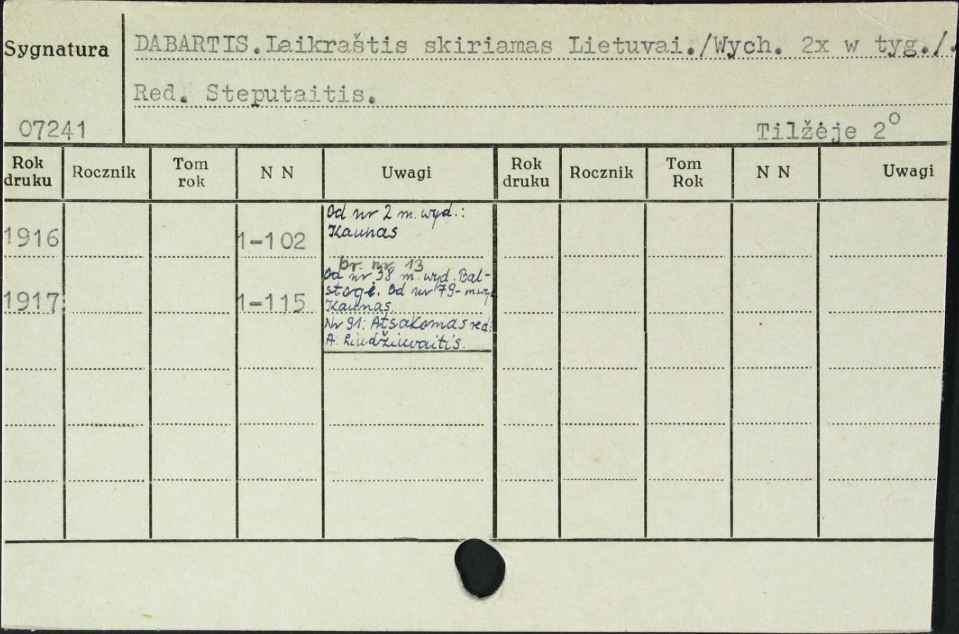 Sygnatura
DABARTIS.Laikraštis skiriamas Lietuvai./Wych. 2x w tyg./.
Red. Steputaitis.
07241
Tilžėje 2°
Rok druku Rocznik Tom rok N N Uwagi Rok druku Rocznik Tom Rok N N Uwagi
1916 1-102
Od nr 2 m. wyd.:
Kaunas
br. nr 13
1917 1-115
Od nr 38 m wyd. Bal-
stogė. Od nr 79-
Kaunas
Nr 91: Atsakomas red.
A.